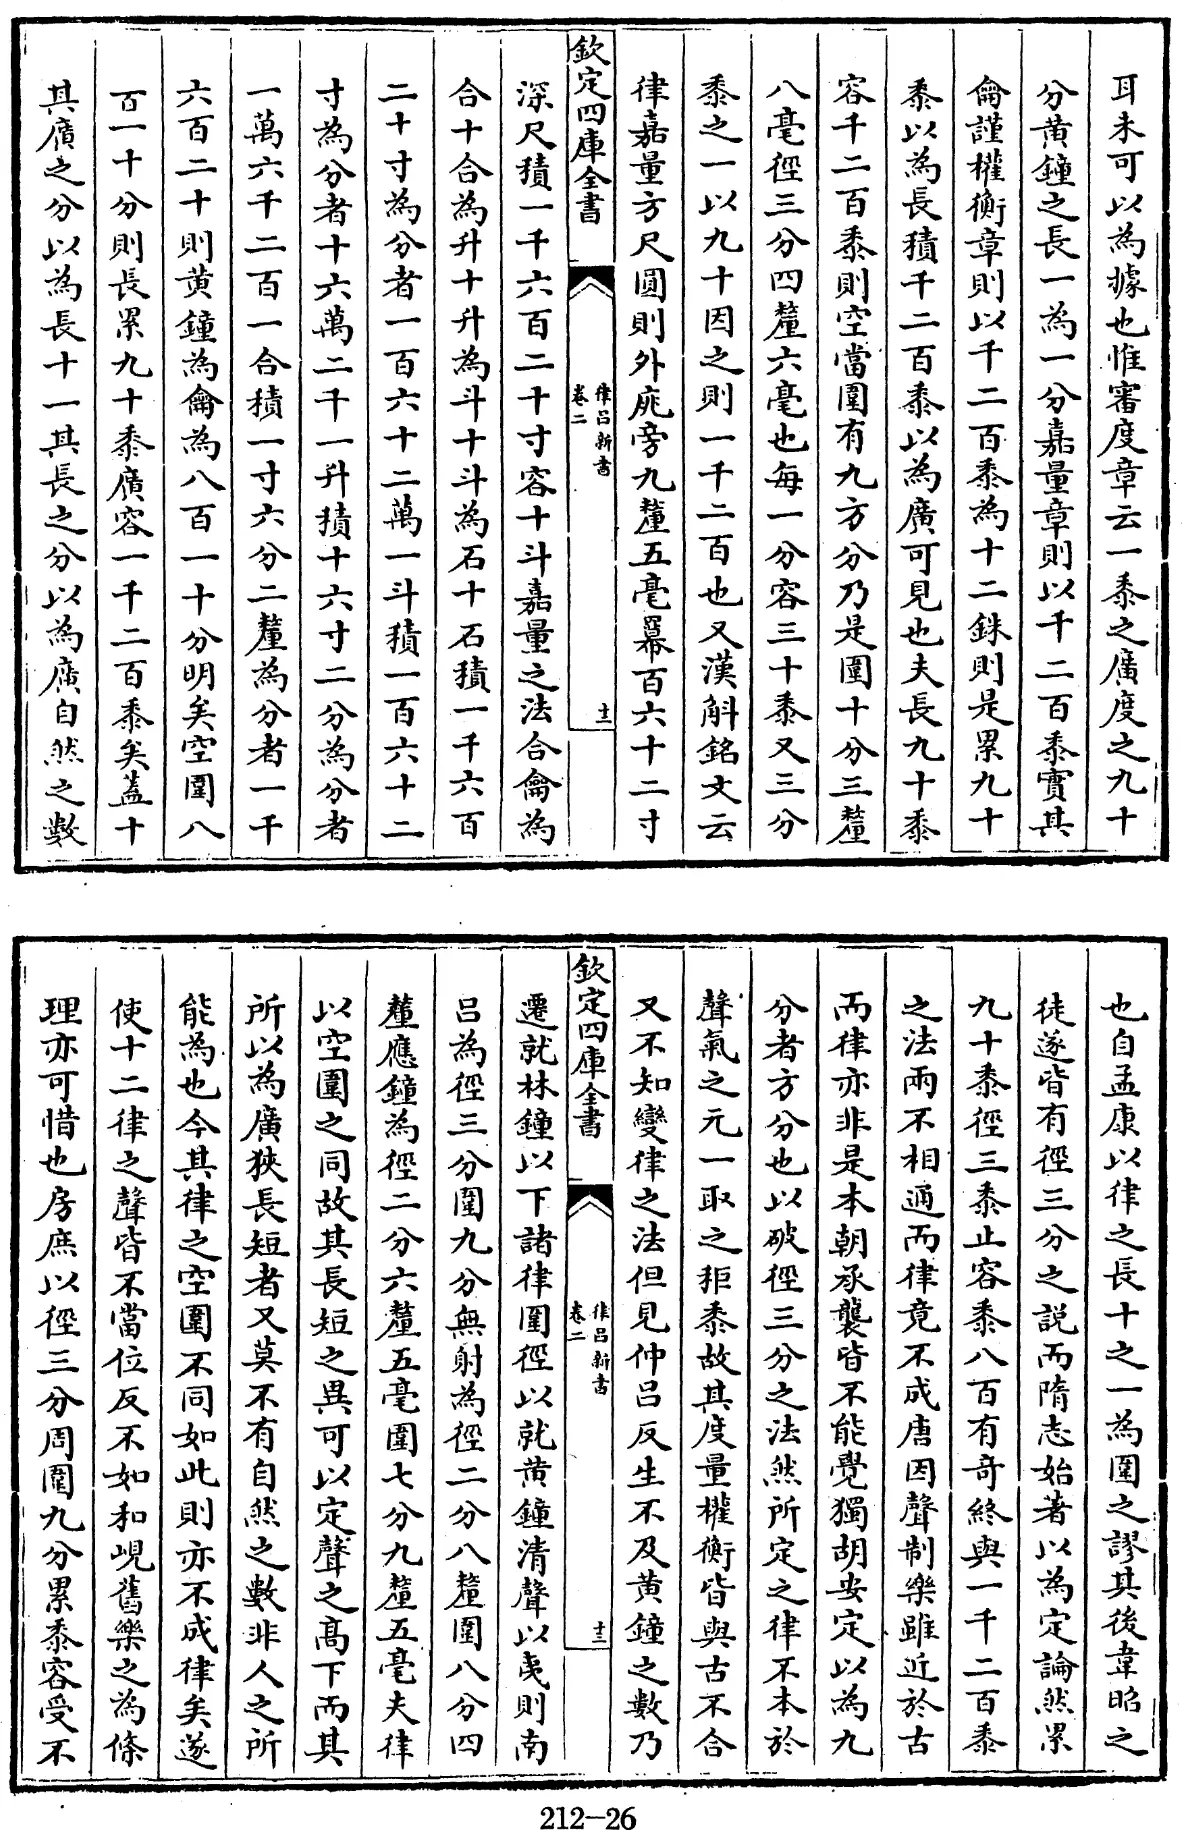 耳未可以為據也惟審度章云一黍之廣度之九十
分黄鐘之長一為一分嘉量章則以千二百黍實其
龠謹權衡章則以千二百黍為十二銖則是累九十
黍以為長積千二百黍以為廣可見也夫長九十黍
容千二百黍則空當圍有九方分乃是圍十分三釐
八毫徑三分四釐六毫也每一分容三十黍又三分
黍之一以九十因之則一千二百也又漢斛銘文云
律嘉量方尺圓則外庣旁九釐五毫冪百六十二寸
欽定四庫全書
律呂新書
卷二
十二
深尺積一千六百二十寸容十斗嘉量之法合龠為
合十合為升十升為斗十斗為石十石積一千六百
二十寸為分者一百六十二萬一斗積一百六十二
寸為分者十六萬二千一升積十六寸二分為分者
一萬六千二百一合積一寸六分二釐為分者一千
六百二十則黄鐘為龠為八百一十分明矣空圍八
百一十分則長累九十黍廣容一千二百黍矣蓋十
其廣之分以為長十一其長之分以為廣自然之數
也自孟康以律之長十之一為圍之謬其後韋昭之
徒遂皆有徑三分之説而隋志始著以為定論然累
九十黍徑三黍止容黍八百有奇終與一千二百黍
之法兩不相通而律竟不成唐因聲制樂雖近於古
而律亦非是本朝承襲皆不能覺獨胡安定以為九
分者方分也以破徑三分之法然所定之律不本於
聲氣之元一取之秬黍故其度量權衡皆與古不合
又不知變律之法但見仲呂反生不及黄鐘之數乃
欽定四庫全書
律呂新書
卷二
十三
遷就林鐘以下諸律圍徑以就黄鐘清聲以夷則南
呂為徑三分圍九分無射為徑二分八釐圍八分四
釐應鐘為徑二分六釐五毫圍七分九釐五毫夫律
以空圍之同故其長短之異可以定聲之髙下而其
所以為廣狹長短者又莫不有自然之數非人之所
能為也今其律之空圍不同如此則亦不成律矣遂
使十二律之聲皆不當位反不如和峴舊樂之為條
理亦可惜也房庶以徑三分周圍九分累黍容受不
212-26